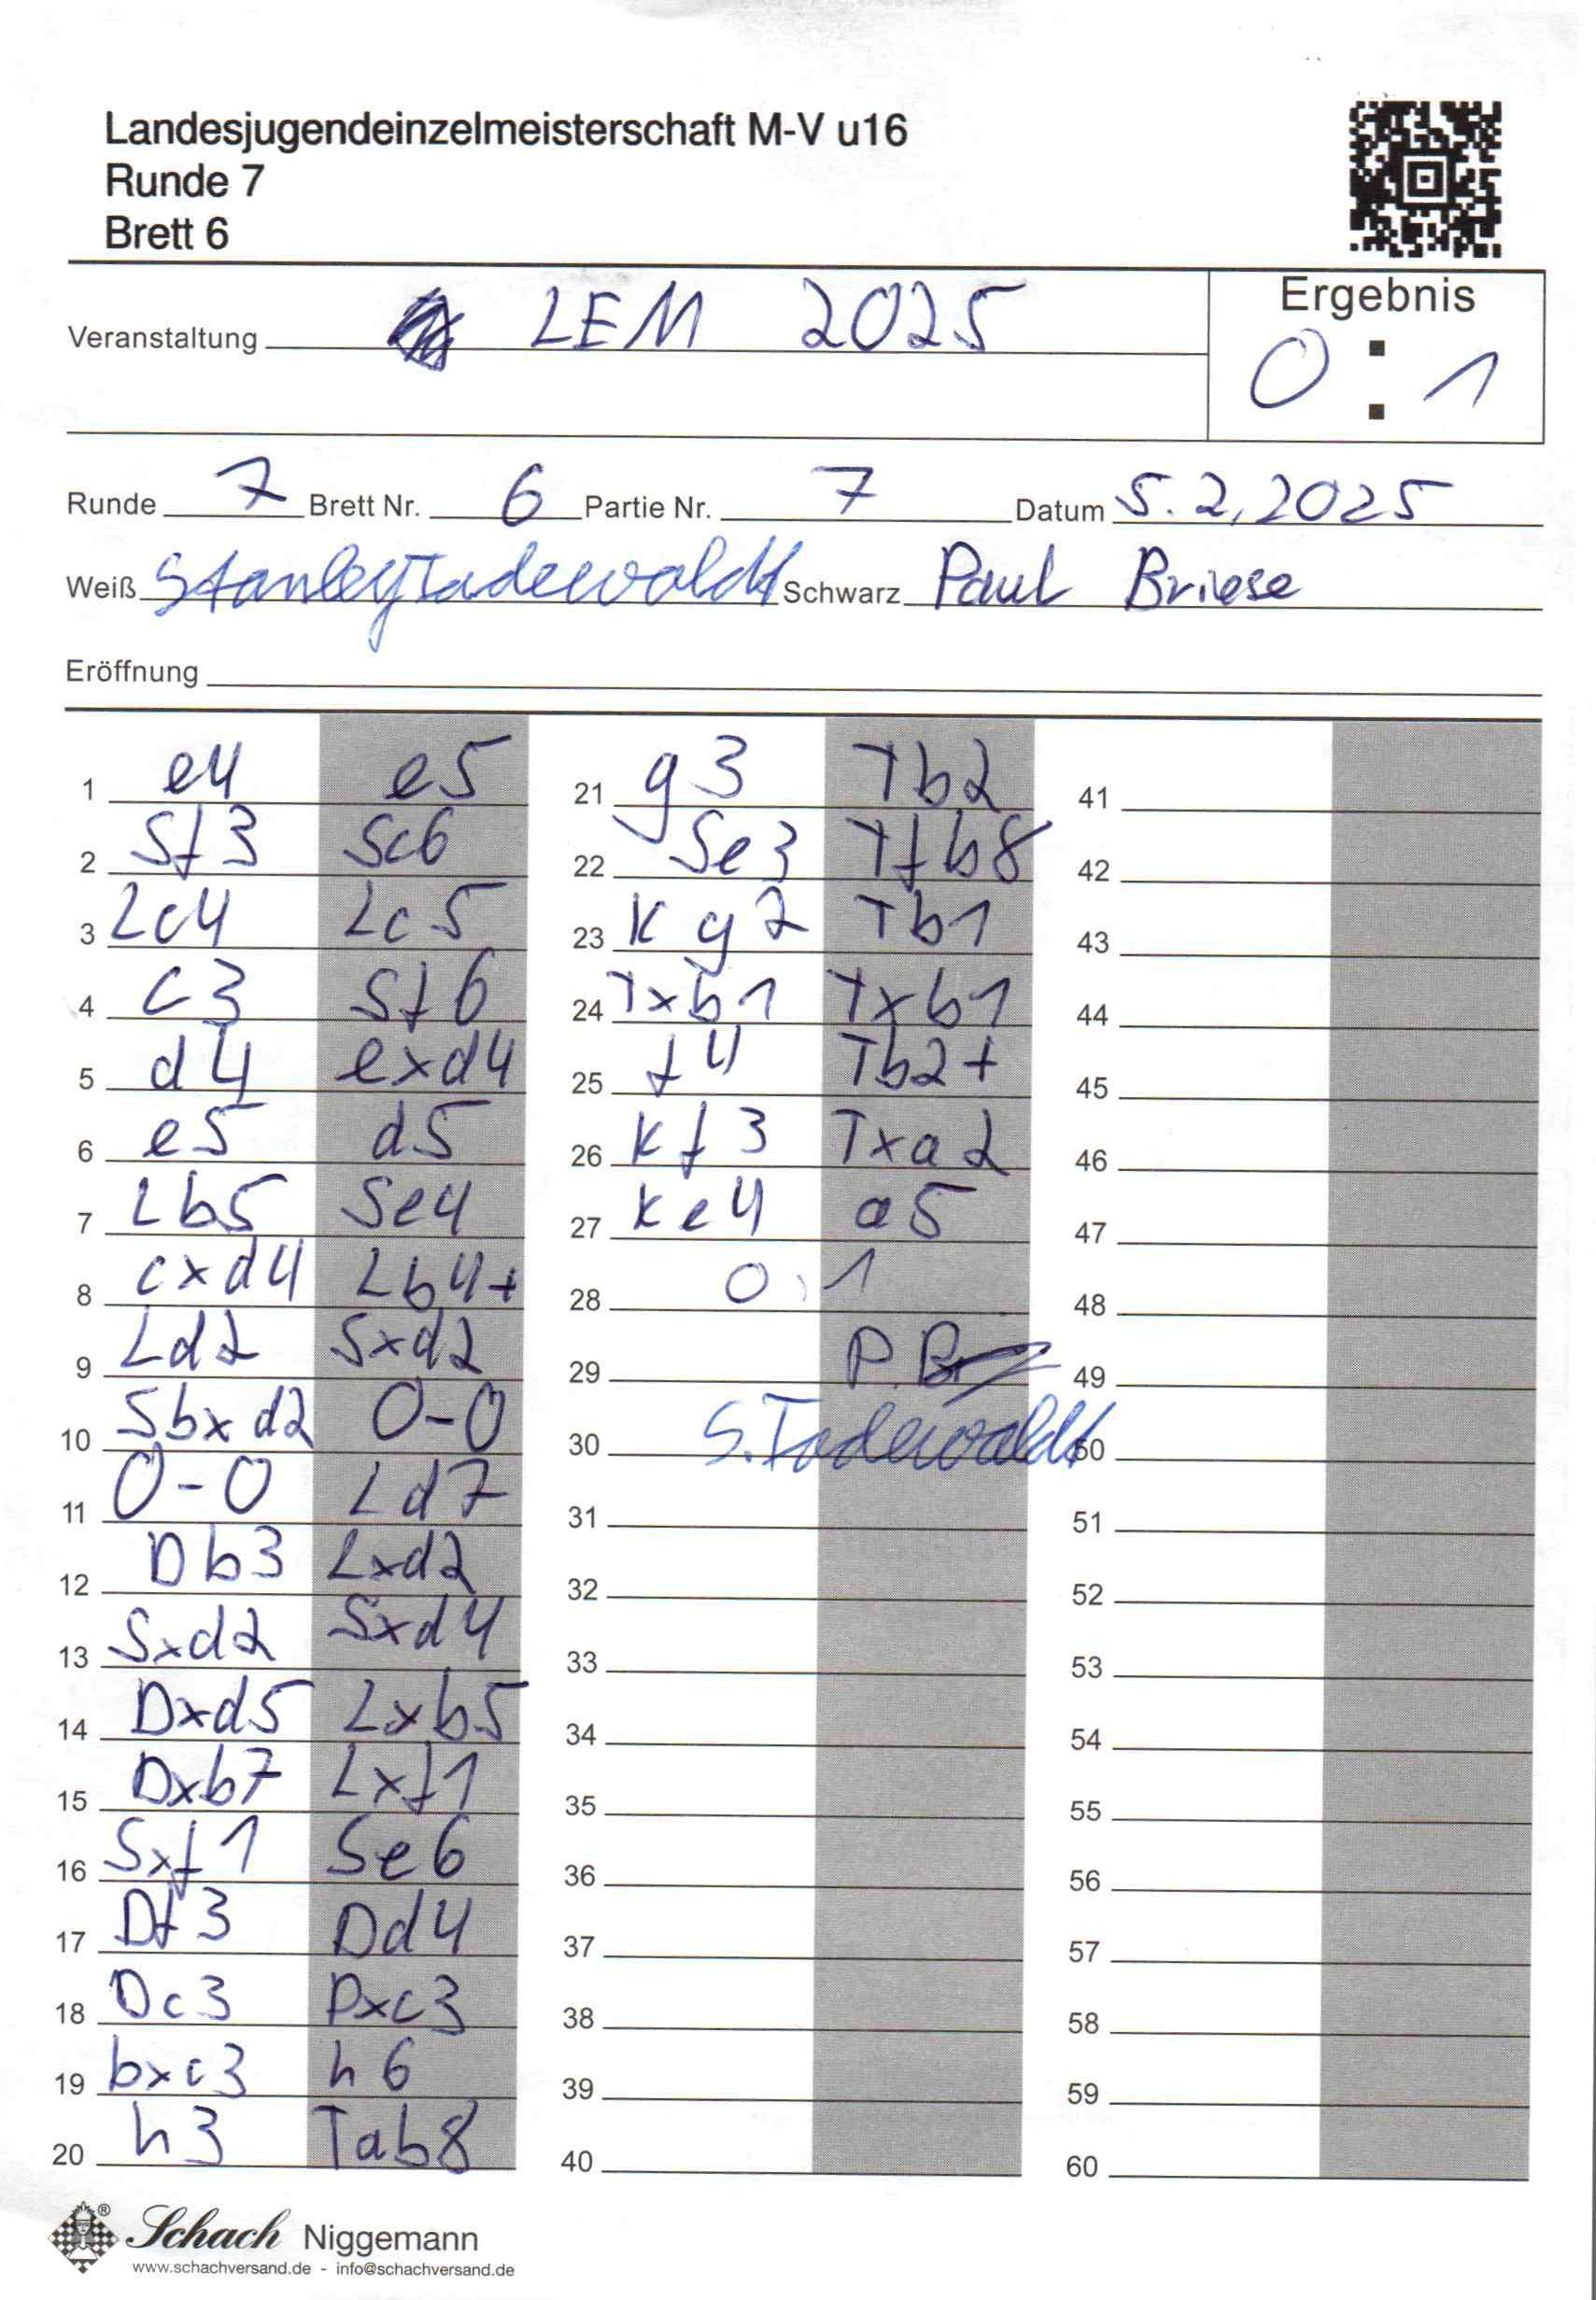 Landesjugendeinzelmeisterschaft M-V u16
Runde 7
Brett 6
Veranstaltung LEM 2025
Ergebnis
0 : 1
Runde 7 Brett Nr. 6 Partie Nr. 7 Datum 5.2.2025
Weiß Stanley Tadewaldt Schwarz Paul Briese
Eröffnung
1 e4 e5
2 Sf3 Sc6
3 Lc4 Lc5
4 c3 Sf6
5 d4 exd4
6 e5 d5
7 Lb5 Se4
8 cxd4 Lb4+
9 Ld2 Sxd2
10 Sbxd2 0-0
11 0-0 Ld7
12 Db3 Lxd2
13 Sxd2 Sxd4
14 Dxd5 Lxb5
15 Dxb7 Lxf1
16 Sxf1 Se6
17 Df3 Dd4
18 Dc3 Dxc3
19 bxc3 h6
20 h3 Tab8
21 g3 Tb2
22 Se3 Tfb8
23 Kg2 Tb1
24 Txb1 Txb1
25 f4 Tb2+
26 Kf3 Txa2
27 Ke4 a5
28 0:1
29 P. Br
30 S. Tadewaldt
31
32
33
34
35
36
37
38
39
40
41
42
43
44
45
46
47
48
49
50
51
52
53
54
55
56
57
58
59
60
Schach Niggemann
www.schachversand.de - info@schachversand.de